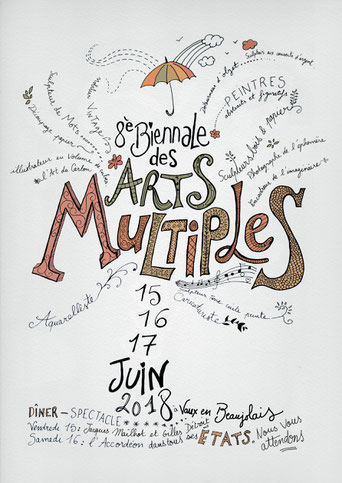 8è Biennale
des
ARTS
MULTIPLES
Sculpteur de Mots
Dinanderie papier
Vintage
illustrateur en Volume
l'Art du Carton
d'objet
Sculpteur
d'argent
PEINTRES
abstraits et figuratifs
Sculpteurs bois & papier
Photographe de l'éphémère
de l'imaginaire
Aquarelliste
Sculpteur sur
peinte
15
16
17
JUIN
2018 à Vaux en Beaujolais
DÎNER - SPECTACLE
Vendredi 15 : Jacques Mailhot et Gilles Détroit
Samedi 16 : l'Accordéon dans tous ses ÉTATS. Nous Vous
attendons